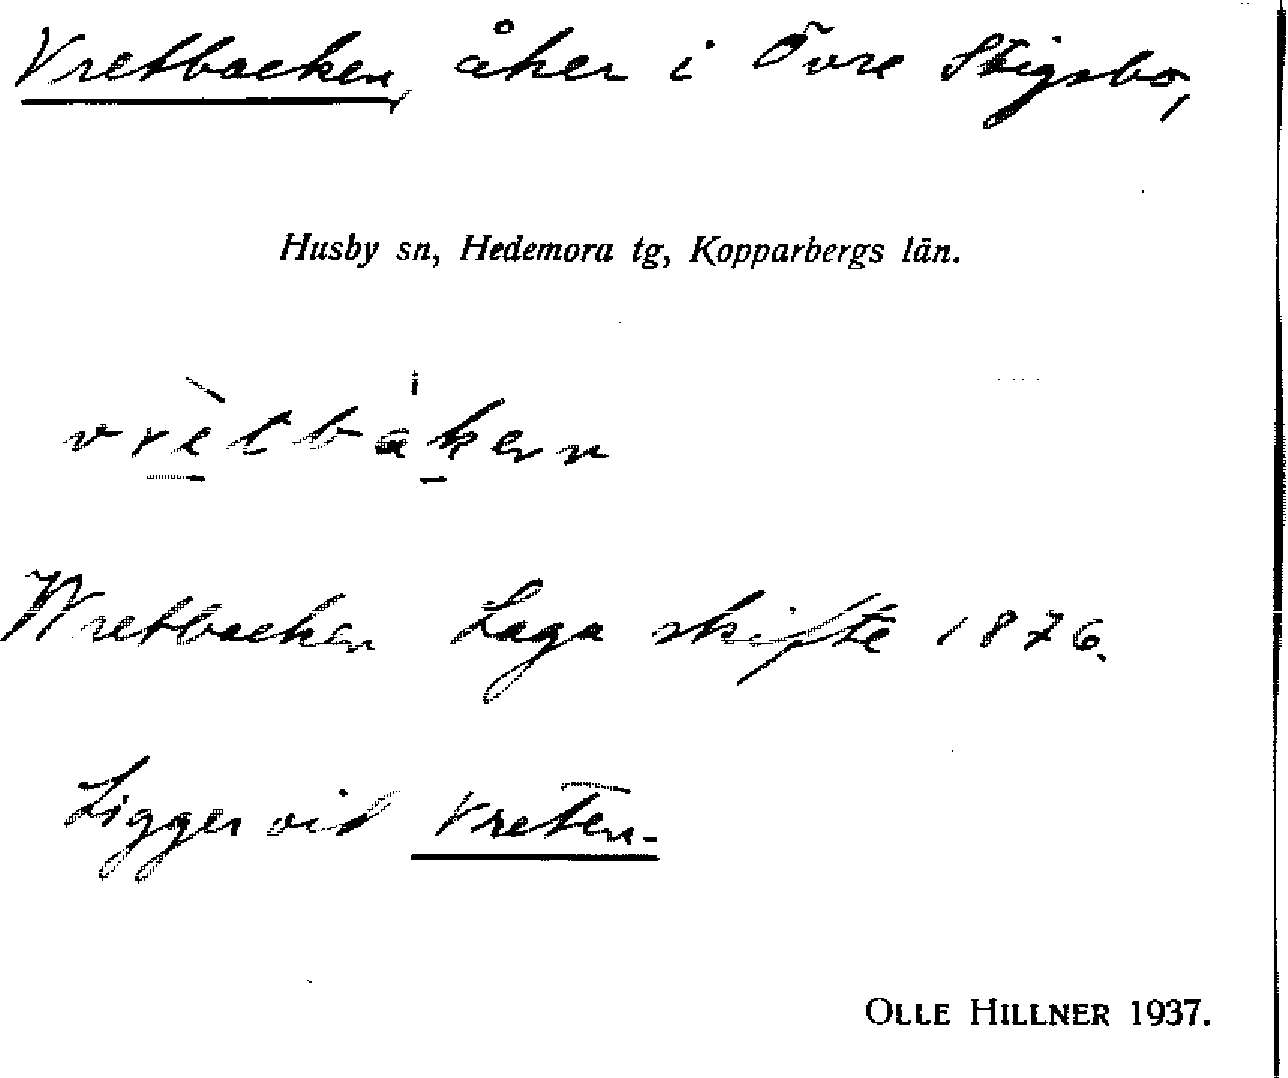 Vretbacken, åker i Övre Stigsbo,
Husby sn, Hedemora tg, Kopparbergs län.
vrètbákən
Wretbacken Laga skifte 1876.
Ligger vid Vreten.
OLLE HILLNER 1937.